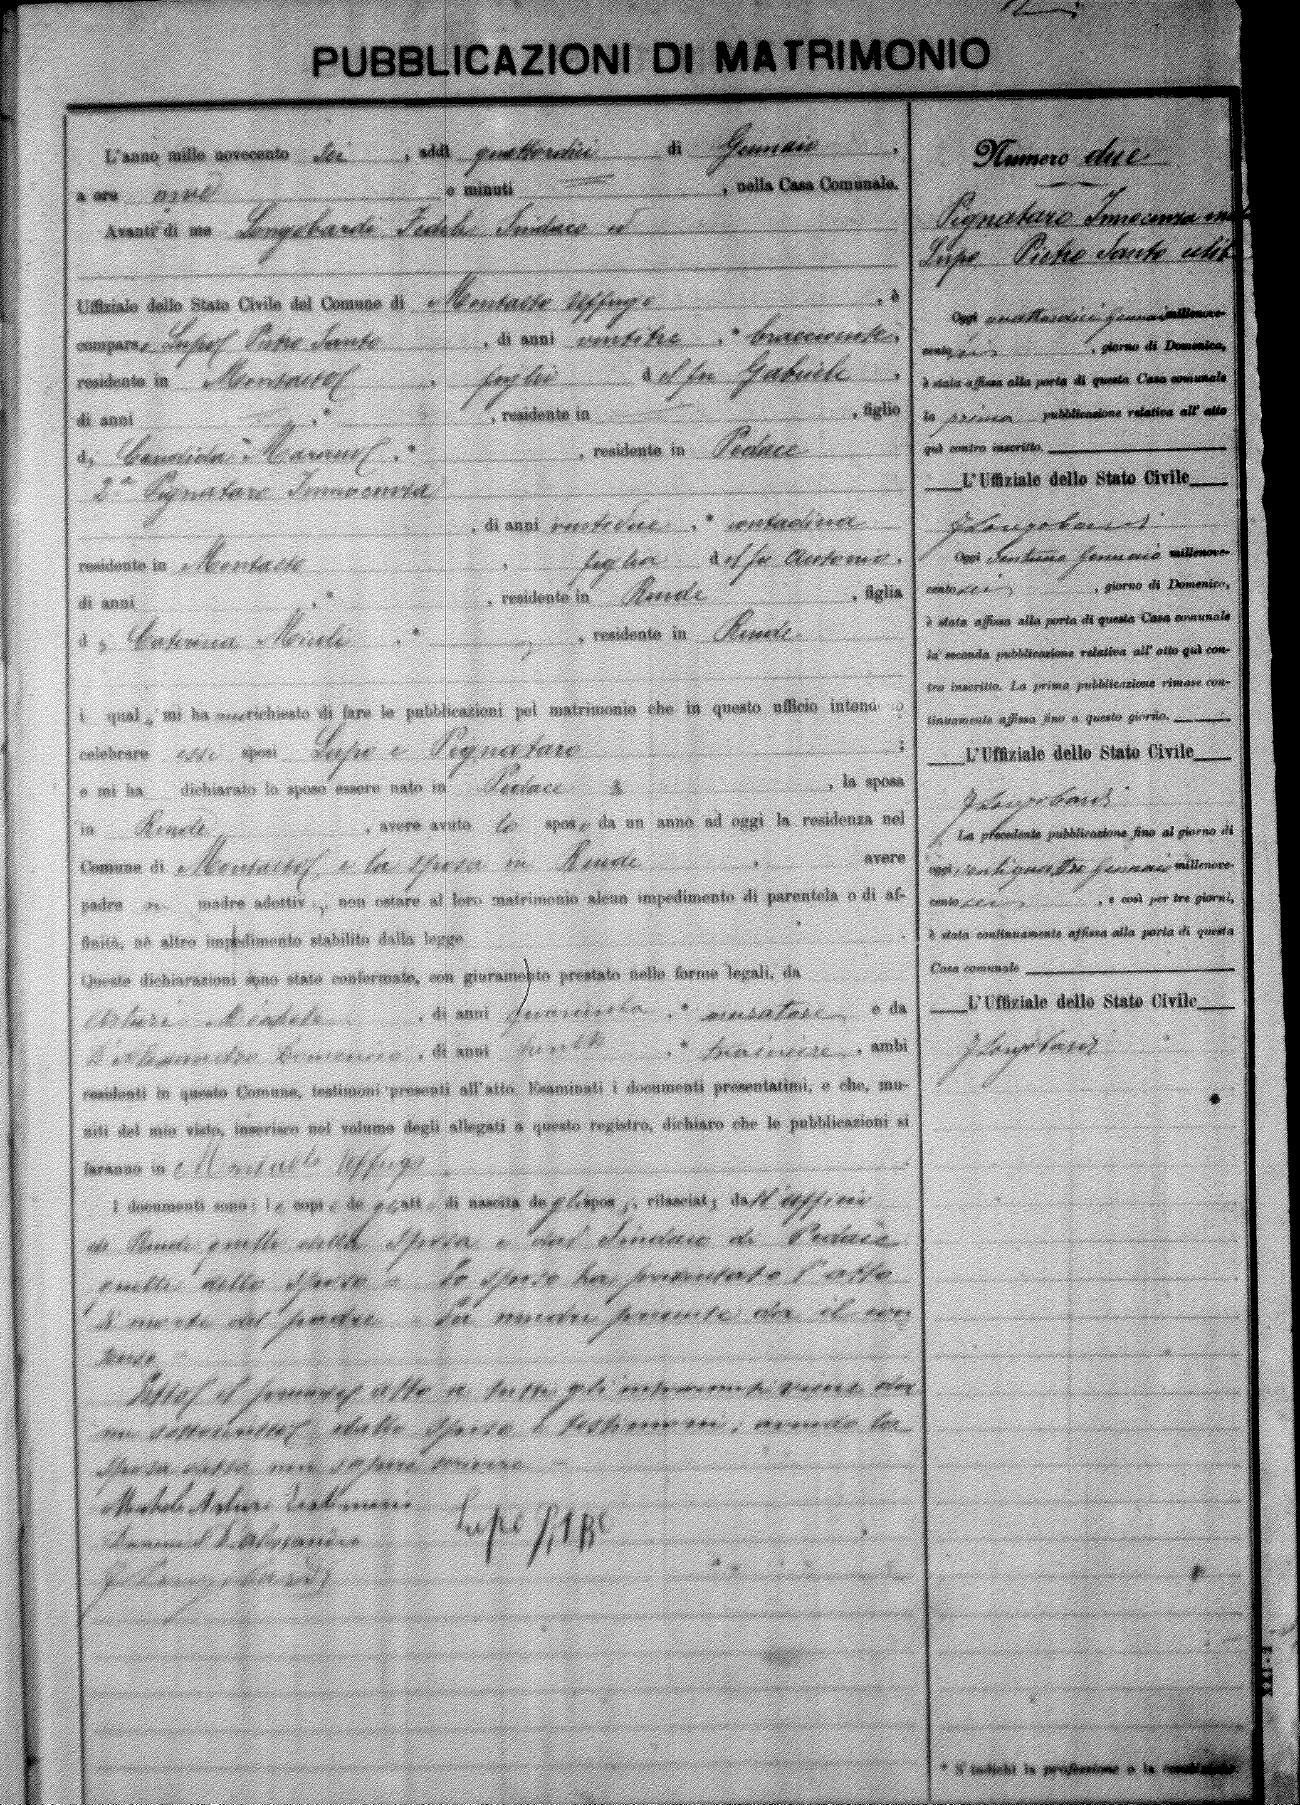 PUBBLICAZIONI DI MATRIMONIO
L'anno mille novecento sei, addì quattordici di Gennaio,
a ore nove e minuti =, nella Casa Comunale.
Avanti di me Longobardi Fedele Sindaco ed
Uffiziale dello Stato Civile del Comune di Montalto Uffugo, è
comparso Lupo Pietro Santo, di anni ventitre, * bracciante,
residente in Montalto, figlio del fu Gabriele,
di anni, *, residente in, figlio
di Candida, *, residente in Pedace
2° Pignataro Innocenzia
, di anni ventidue, * contadina
residente in Montalto, figlia del fu Antonio,
di anni, *, residente in Rende, figlia
di Caterina, *, residente in Rende
i qual mi ha richiesto di fare le pubblicazioni pel matrimonio che in questo ufficio intend
celebrare essi sposi Lupo e Pignataro;
e mi ha dichiarato lo sposo essere nato in Pedace, la sposa
in Rende, avere avuto lo sposo da un anno ad oggi la residenza nel
Comune di Montalto e la sposa in Rende, avere
padre madre adottiv, non ostare al loro matrimonio alcun impedimento di parentela o di af-
finità, nè altro impedimento stabilito dalla legge.
Queste dichiarazioni sono state confermate, con giuramento prestato nelle forme legali, da
Arturi Michele, di anni quaranta, * muratore e da
D'Alessandro Domenico, di anni trenta, *, ambi
residenti in questo Comune, testimoni presenti all'atto. Esaminati i documenti presentatimi, e che, mu-
niti del mio visto, inserisco nel volume degli allegati a questo registro, dichiaro che le pubblicazioni si
faranno in Montalto Uffugo.
I documenti sono: le copie de gli atti di nascita degli sposi, rilasciati dall'
di Rende quella della sposa e dal Sindaco di Pedace
quella dello sposo = Lo sposo ha presentato l'atto
di morte del padre. La madre presente dà il con
senso =
Letto il presente atto a tutti gli intervenuti viene da
me sottoscritto, dallo sposo e testimoni, avendo la
sposa detto non sapere scrivere =
Michele Arturi Testimonio
Lupo Pietro
Domenico D'Alessandro
F Longobardi
Numero due
Pignataro Innocenzia
Lupo Pietro Santo
Oggi quattordici Gennaio millenove-
cento sei, giorno di Domenica,
è stata affissa alla porta di questa Casa comunale
la prima pubblicazione relativa all'atto
quì contro inscritto.
L'Uffiziale dello Stato Civile
F Longobardi
Oggi ventuno Gennaio millenove-
cento sei, giorno di Domenica,
è stata affissa alla porta di questa Casa comunale
la seconda pubblicazione relativa all'atto quì con-
tro inscritto. La prima pubblicazione rimase con-
tinuamente affissa fino a questo giorno.
L'Uffiziale dello Stato Civile
F Longobardi
La precedente pubblicazione fino al giorno di
oggi ventiquattro Gennaio millenove-
cento sei, e così per tre giorni,
è stata continuamente affissa alla porta di questa
Casa comunale
L'Uffiziale dello Stato Civile
F Longobardi
* S'indichi la professione o la condizione.